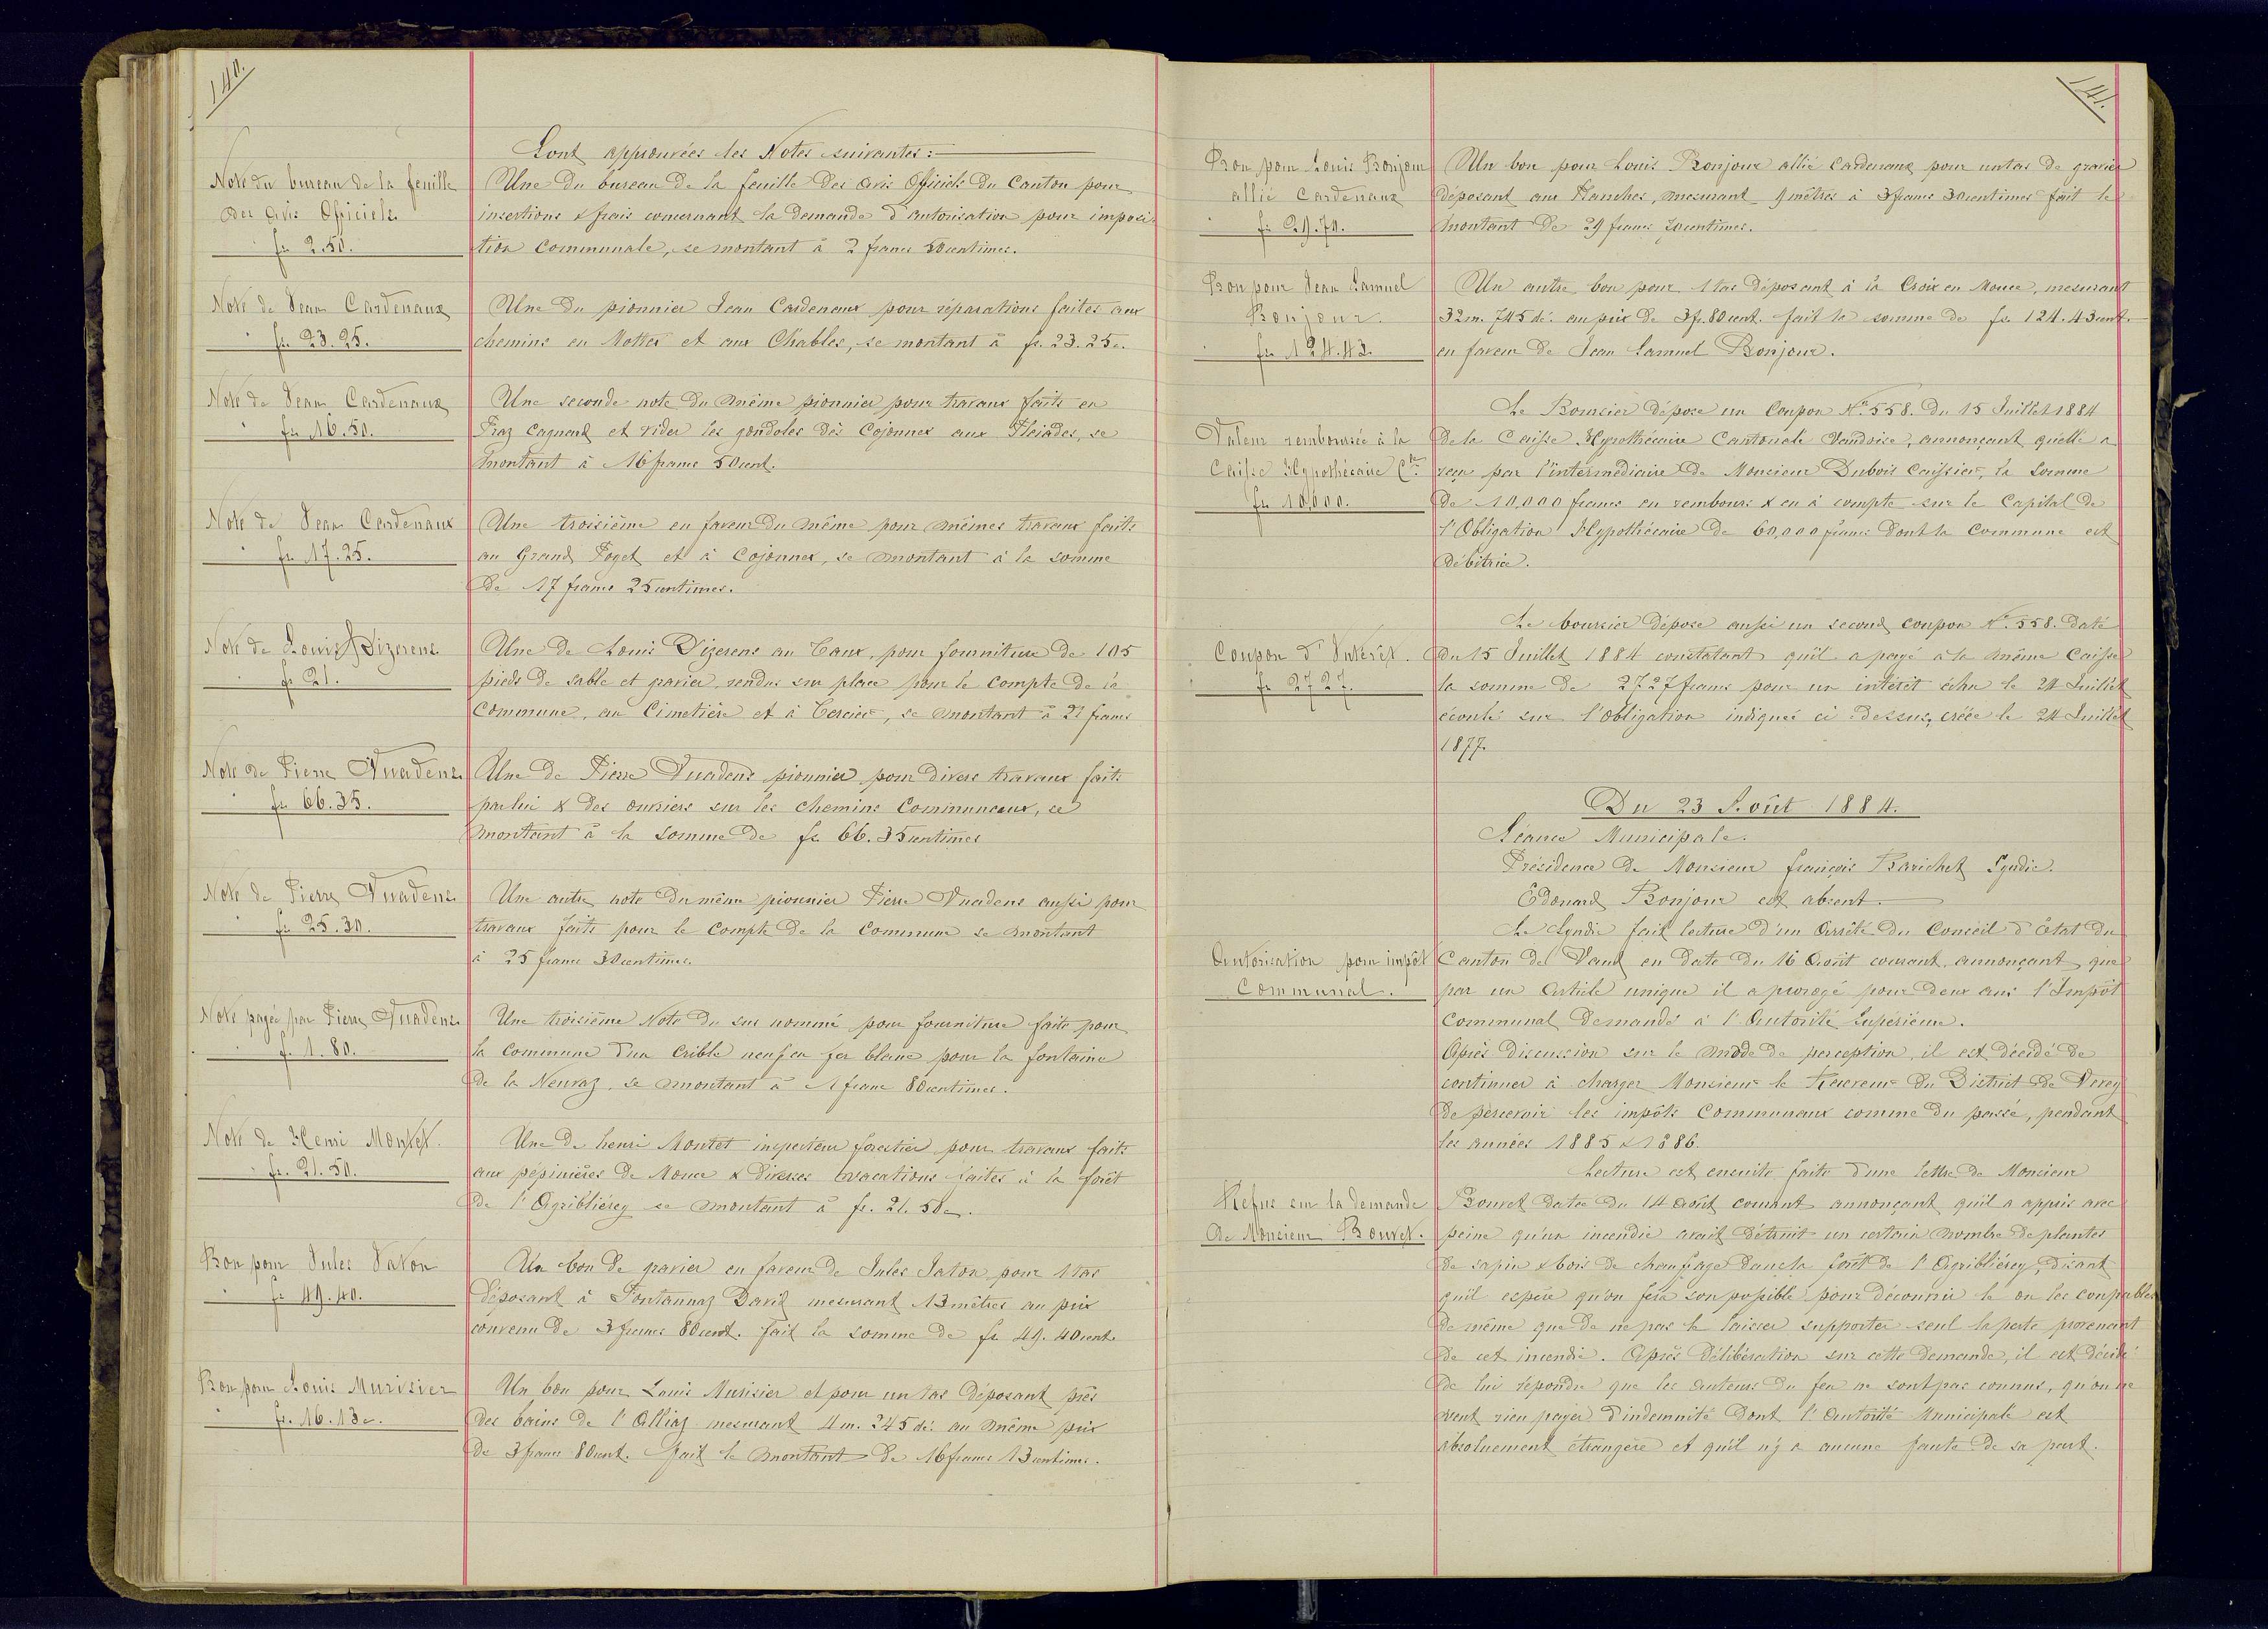 140.
Sont approuvées les Notes suivantes :
Note du bureau de la feuille
des Avis Officiels
fr. 2.50.
Une du bureau de la feuille des Avis Officiels du Canton pour
insertions & frais concernant la demande d'autorisation pour imposi-
tion Communale, se montant à 2 francs 50 centimes.
Note de Jean Cardenaux
fr. 23.25.
Une du pionnier Jean Cardenaux pour réparations faites aux
chemins en Mottex et aux Chables, se montant à fr. 23.25 c.
Note de Jean Cardenaux
fr. 16.50.
Une seconde note du même pionnier pour travaux faits en
Praz Cagnard et vider les gondoles dès Cojonnex aux Pleiades, se
montant à 16 francs 50 cent.
Note de Jean Cardenaux
fr. 17.25.
Une troisième en faveur du même pour mêmes travaux faits
au Grand Poyet et à Cojonnex, se montant à la somme
de 17 francs 25 centimes.
Note de Louis Dizerens
fr. 21.
Une de Louis Dizerens au Caux, pour fourniture de 105
pieds de sable et gravier, rendus sur place pour le compte de la
Commune, au Cimetière et à Cercier, se montant à 21 francs
Note de Pierre Vuadens
fr. 66.35.
Une de Pierre Vuadens pionnier pour divers travaux faits
par lui & des ouvriers sur les chemins Communaux, se
montant à la somme de fr. 66.35 centimes
Note de Pierre Vuadens
fr. 25.30.
Une autre note du même pionnier Pierre Vuadens aussi pour
travaux faits pour le Compte de la Commune se montant
à 25 francs 30 centimes.
Note payée par Pierre Vuadens
fr. 1.80.
Une troisième Note du sus nommé pour fourniture faite pour
la Commune d'un Crible neuf en fer blanc pour la fontaine
de la Neuvaz, se montant à 1 franc 80 centimes.
Note de Henri Montet.
fr. 21.50.
Une de henri Montet inspecteur forestier pour travaux faits
aux pépinières de Mouce & diverses vacations faites à la forêt
de l'Agribliérey se montant à fr. 21.50 c.
Bon pour Jules Vaton
fr. 49.40.
Un bon de gravier en faveur de Jules Jaton pour 1 tas
déposant à Fontannaz David mesurant 13 mètres au prix
convenu de 3 francs 80 cent. fait la somme de fr. 49.40 cent.
Bon pour Louis Murisier
fr. 16.13 c.
Un bon pour Louis Murisier et pour un tas déposant près
des bains de l'Alliaz mesurant 4 m. 245 dé. au même prix
de 3 francs 80 cent. fait le montant de 16 francs 13 centimes.
141.
Bon pour Louis Bonjour
allié Cardenaux
fr. 29.70.
Un bon pour Louis Bonjour allié Cardenaux pour un tas de gravier
déposant aux Planches, mesurant 9 mètres à 3 francs 30 centimes fait le
montant de 29 francs 70 centimes.
Bon pour Jean Samuel
Bonjour.
fr. 124.43.
Un autre bon pour 1 tas déposant à la Croix en Mouce, mesurant
32 m. 745 dé. au prix de 3 fr. 80 cent. fait la somme de frs. 124.43 cent.
en faveur de Jean Samuel Bonjour.
Valeur remboursée à la
Caisse Hypothécaire Cle.
fr. 10,000.
Le Boursier dépose un Coupon No. 558. du 15 Juillet 1884
de la Caisse Hypothécaire Cantonale Vaudoise, annonçant qu'elle a
reçu par l'intermédiaire de Monsieur Dubois Caissier, la Somme
de 10,000 francs en rembours & en à compte sur le Capital de
l'Obligation Hypothécaire de 60,000 francs dont la Commune est
débitrice.
Coupon d'Intérêt.
fr. 2727.
Le boursier dépose aussi un second coupon No. 558. daté
du 15 Juillet 1884 constatant qu'il a payé à la même Caisse
la somme de 2727 francs pour un intérêt échu le 24 Juillet
écoulé sur l'Obligation indiquée ci-dessus, créée le 24 Juillet
1877.
Du 23 Août 1884.
Séance Municipale.
Présidence de Monsieur françois Barichet Syndic.
Edouard Bonjour est absent.
Autorisation pour impôt
Communal.
Le Syndic fait lecture d'un Arrêté du Conseil d'Etat du
Canton de Vaud en date du 16 Août courant, annonçant que
par un Article unique il a prorogé pour deux ans l'Impôt
Communal demandé à l'Autorité Supérieure.
Après discussion sur le mode de perception, il est décidé de
continuer à charger Monsieur le Receveur du District de Vevey
de percevoir les impôts Communaux comme du passé, pendant
les années 1885 & 1886.
Refus sur la demande
de Monsieur Bouvet.
Lecture est ensuite faite d'une lettre de Monsieur
Bouvet datée du 14 Août courant annonçant qu'il a appris avec
peine qu'un incendie avait détruit un certain nombre de plantes
de sapin & bois de chauffage dans la forêt de l'Agribliérey, disant
qu'il espère qu'on fera son possible pour découvrir le ou les coupables
de même que de ne pas le laisser supporter seul la perte provenant
de cet incendie. Après délibération sur cette demande, il est décidé
de lui répondre que les Auteurs du feu ne sont pas connus, qu'on ne
veut rien payer d'indemnité dont l'Autorité Municipale est
absolument étrangère et qu'il n'y a aucune faute de sa part.